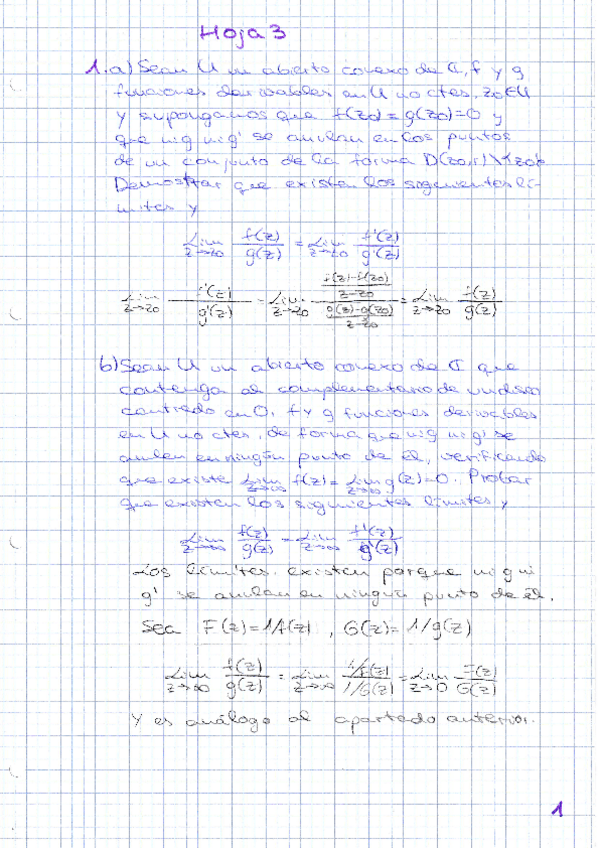 Hoja 3
1.a) Sean U un abierto conexo de ℂ, f y g
funciones derivables en U no ctes, z₀∈U
y supongamos que f(z₀)=g(z₀)=0 y
que ni g ni g' se anulan en los puntos
de un conjunto de la forma D(z₀,r)\{z₀}.
Demostrar que existen los siguientes lí-
mites y
Lim z→z₀ f(z)/g(z) = Lim z→z₀ f'(z)/g'(z)
Lim z→z₀ f'(z)/g'(z) = Lim z→z₀ ((f(z)-f(z₀))/(z-z₀))/((g(z)-g(z₀))/(z-z₀)) = Lim z→z₀ f(z)/g(z)
b) Sean U un abierto conexo de ℂ que
contenga al complementario de un disco
centrado en 0, f y g funciones derivables
en U no ctes, de forma que ni g ni g' se
anulen en ningún punto de él, verificando
que existe Lim z→∞ f(z) = Lim z→∞ g(z)=0. Probar
que existen los siguientes límites y
Lim z→∞ f(z)/g(z) = Lim z→∞ f'(z)/g'(z)
Los límites existen porque ni g ni
g' se anulan en ningún punto de él.
Sea F(z)=1/f(z), G(z)=1/g(z)
Lim z→∞ f(z)/g(z) = Lim z→∞ (1/F(z))/(1/G(z)) = Lim z→0 F(z)/G(z)
Y es análogo al apartado anterior.
1